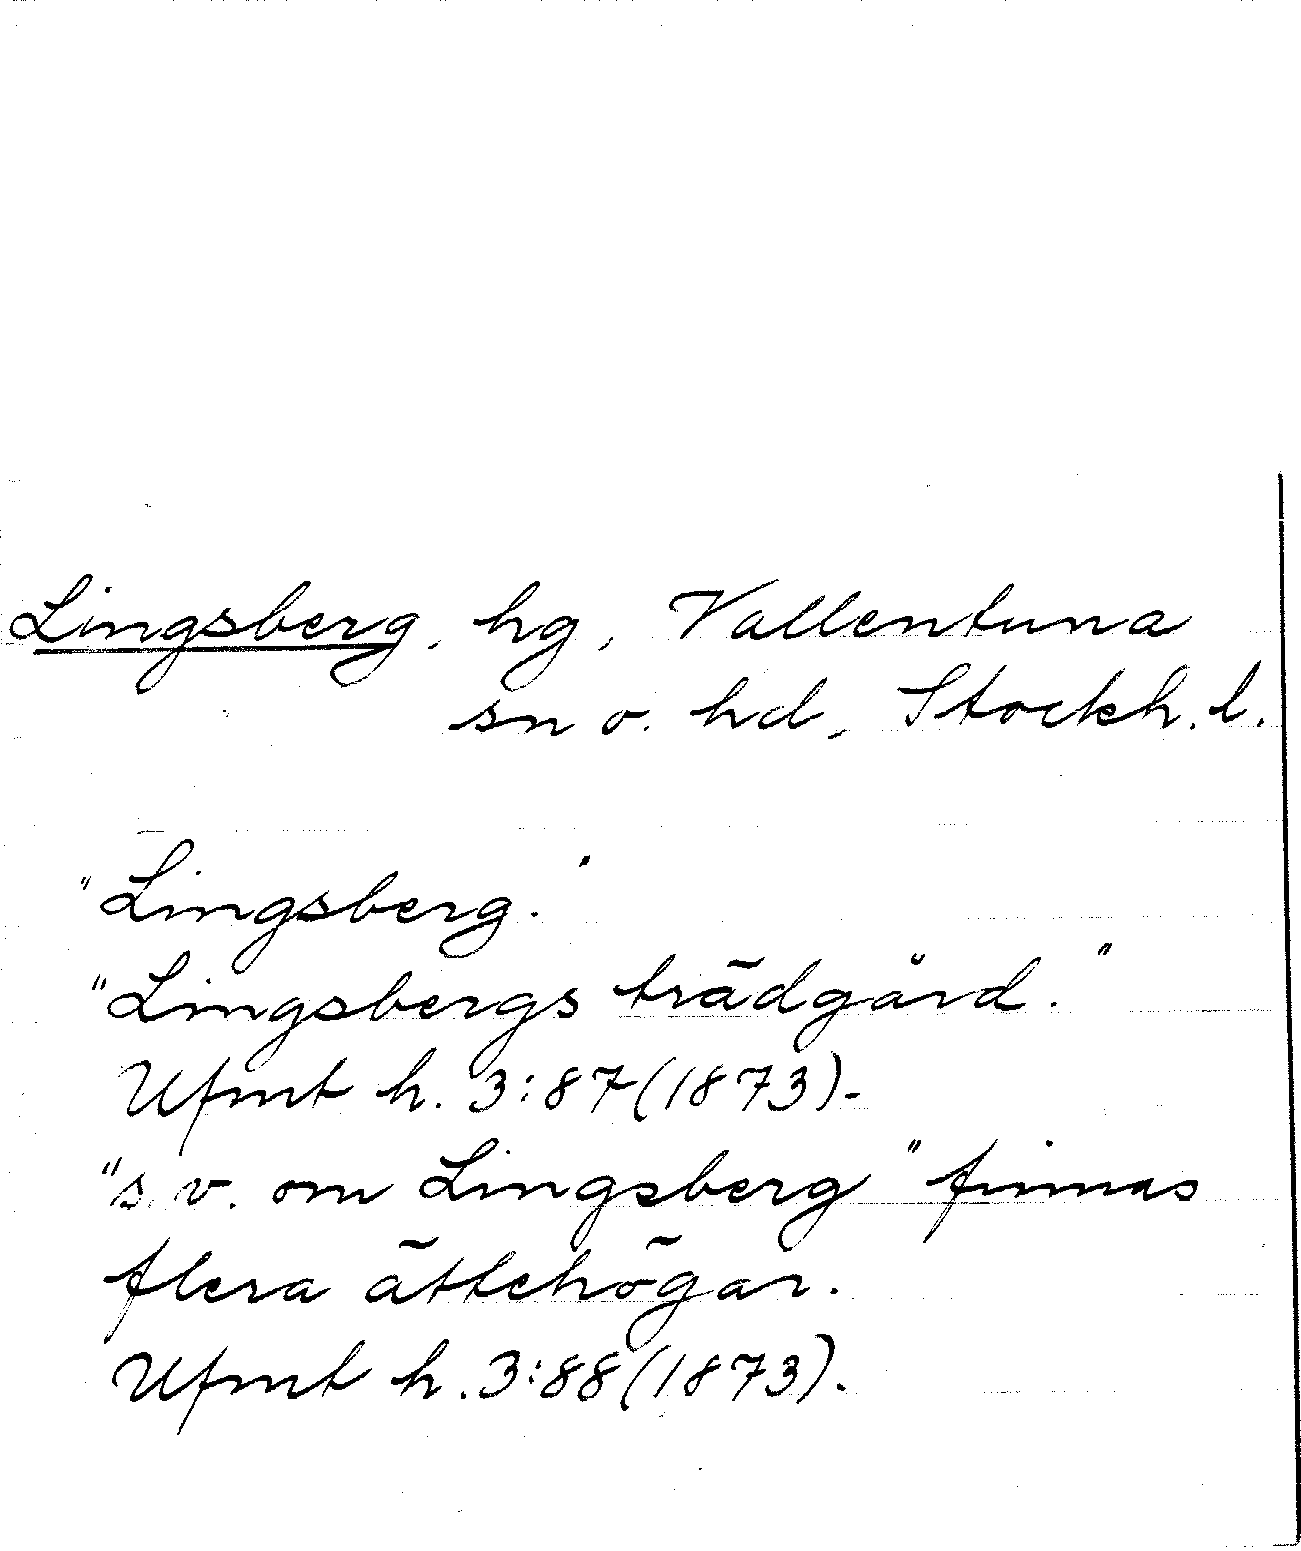 Lingsberg, hg, Vallentuna
sn o. hd, Stockh. l.
"Lingsberg."
"Lingsbergs trädgård."
Ufmt h. 3:87(1873).
"s.v. om Lingsberg" finnas
flera ättehögar.
Ufmt h. 3:88(1873).